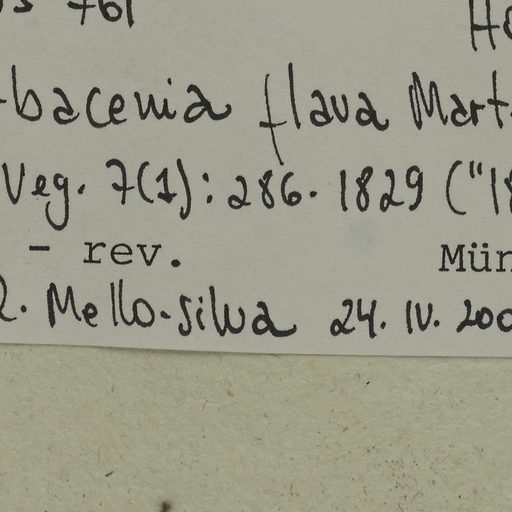 761 Ho
bacenia flava Mart.
Veg. 7(1): 286. 1829 ("18
- rev. Mün
R. Mello-Silva 24. IV. 200